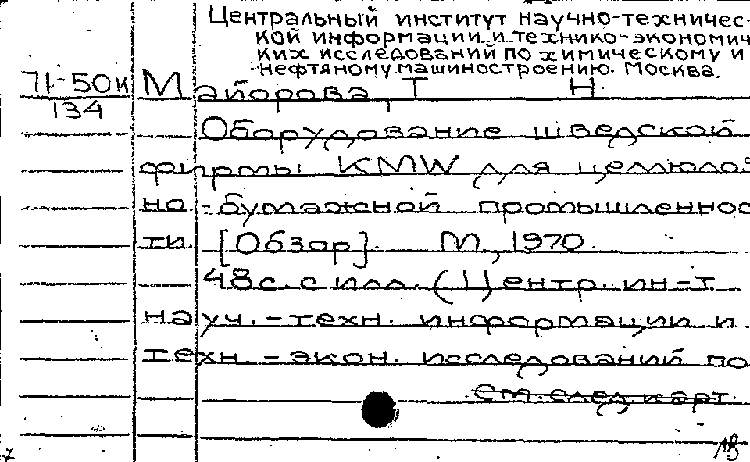 Центральный институт научно-техничес-
кой информации и технико-экономич
ких исследований по химическому и
нефтяному машиностроению. Москва.
71-50к
134
Майорова, Т. Н.
Оборудование шведской
фирмы KMW для целлюлоз
но-бумажной промышленнос
ти. [Обзор]. М., 1970.
48 с. с илл. (Центр. ин-т
науч.-техн. информации и
техн.-экон. исследований по
см. след. карт.